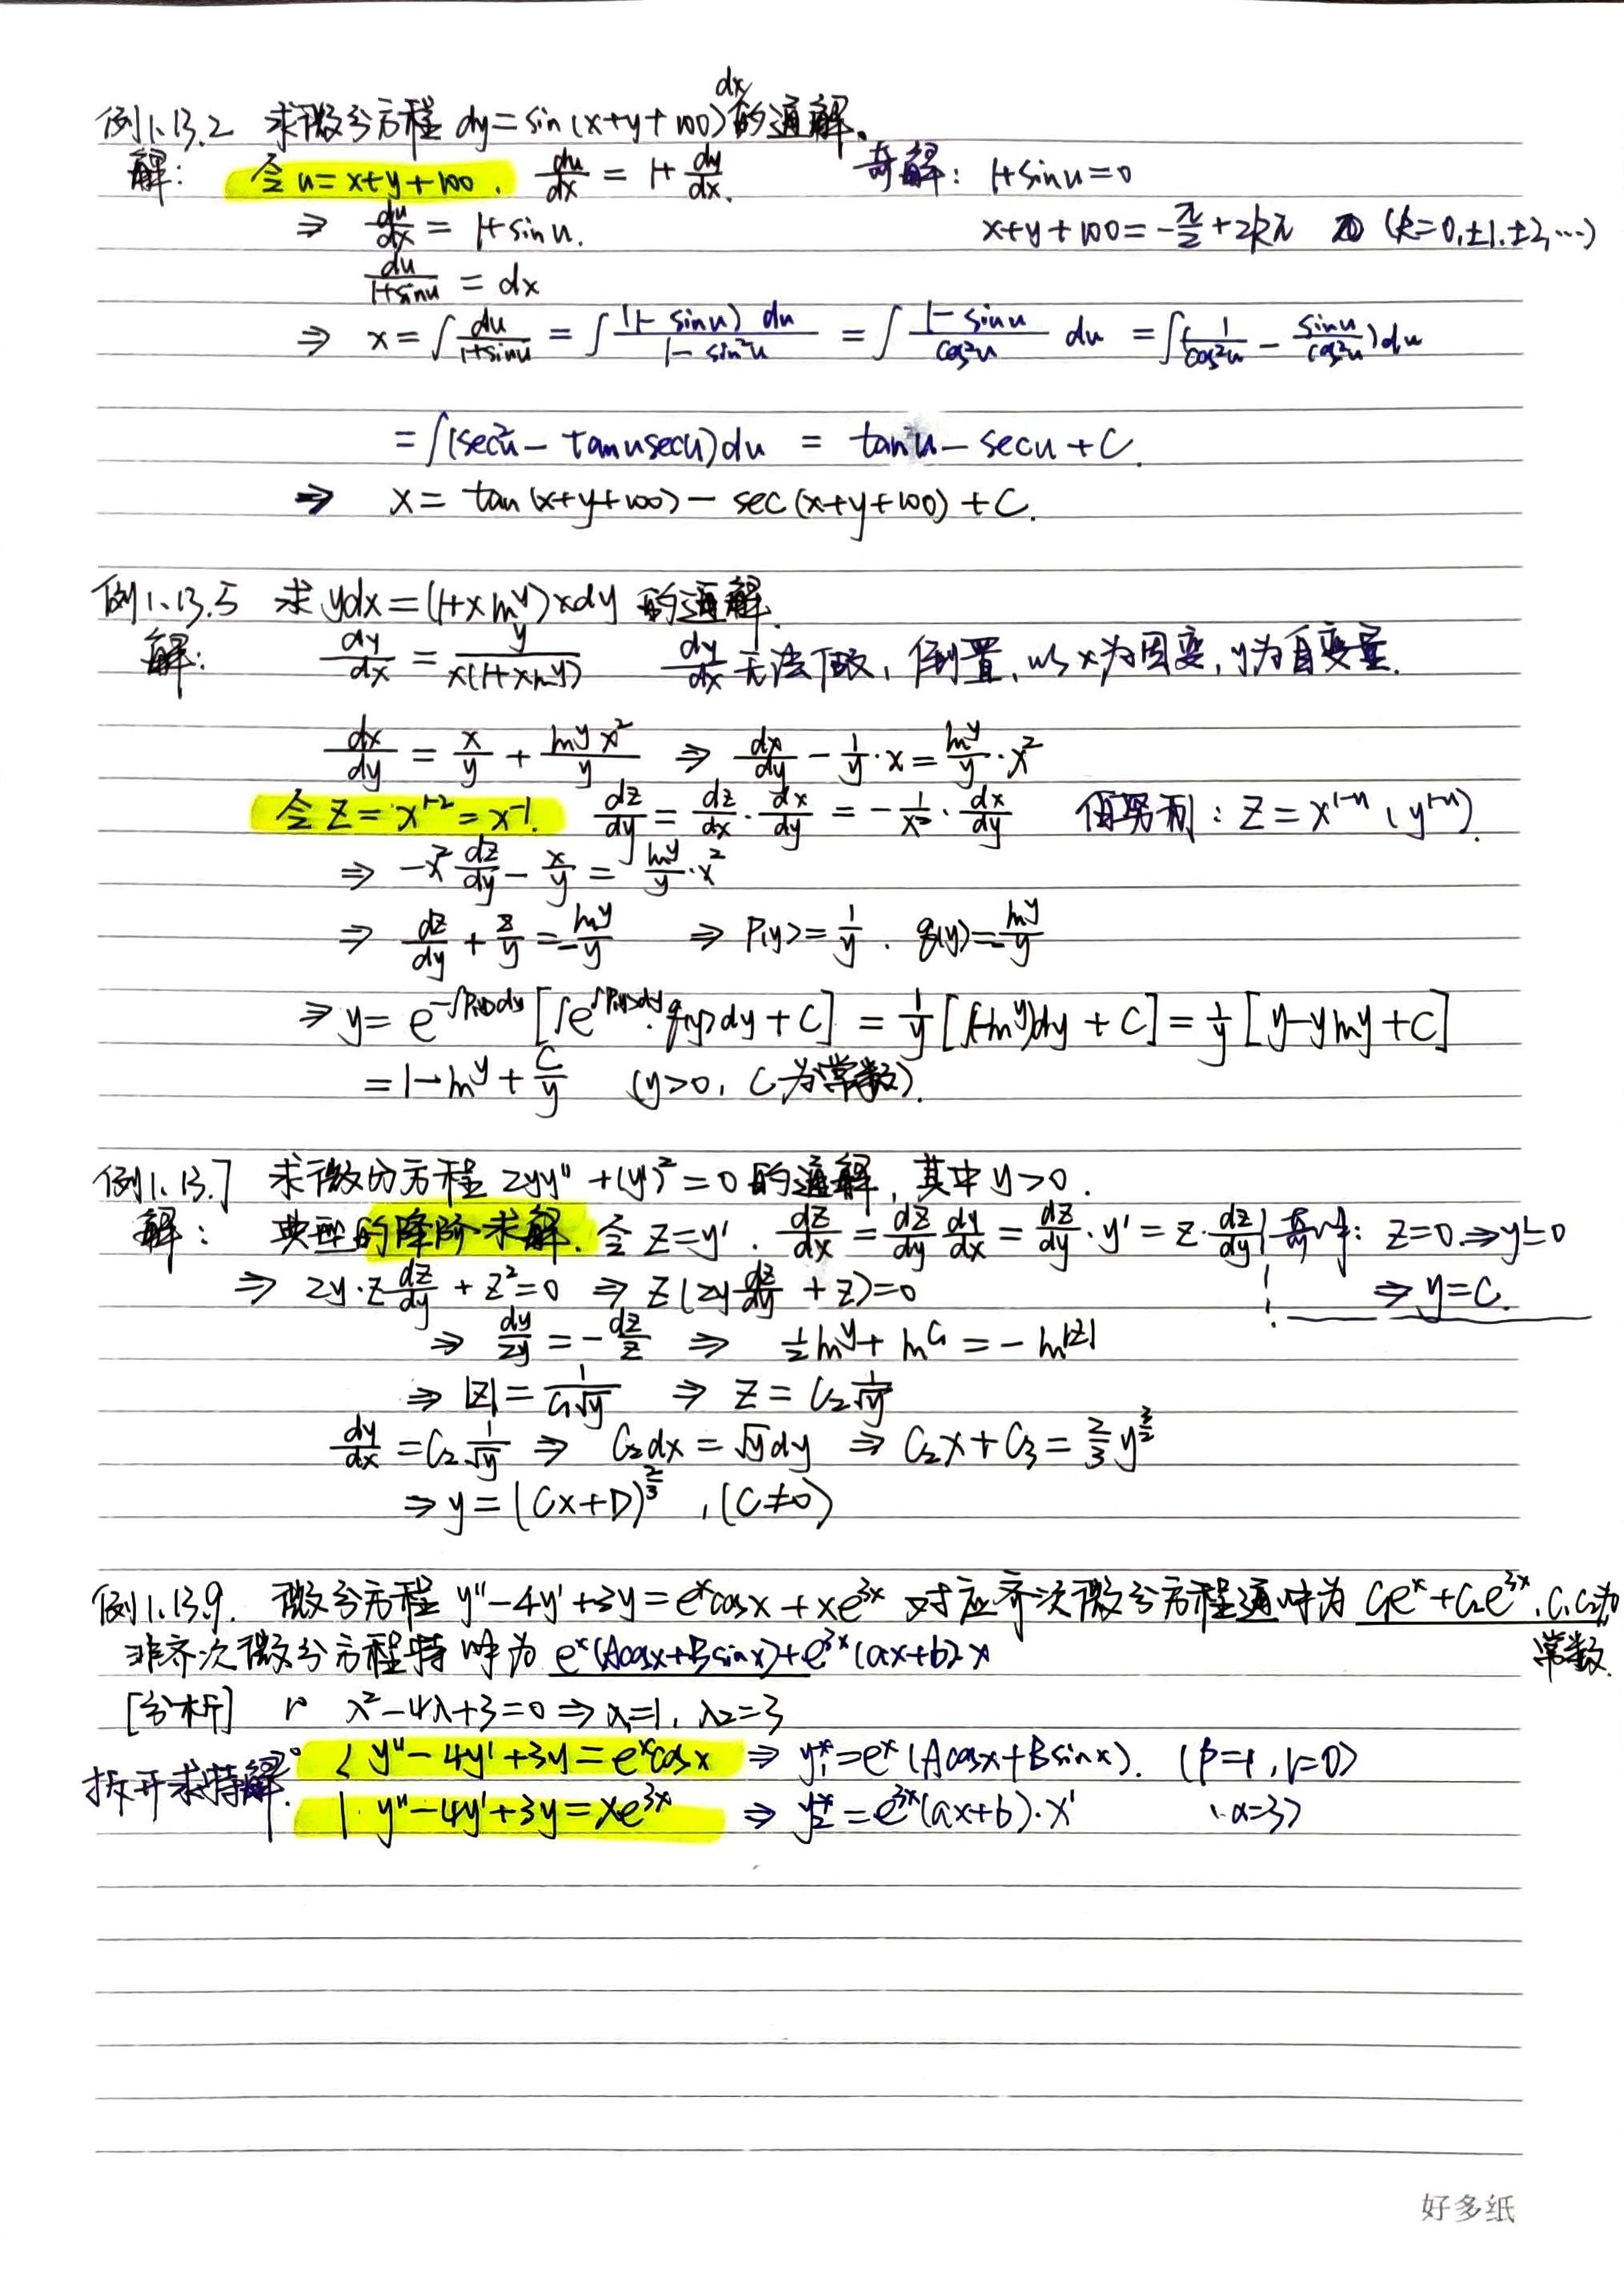 例1.13.2 求微分方程 dy = sin(x+y+100)dx 的通解。
解: 令 u = x+y+100. du/dx = 1+ dy/dx. 奇解: 1+sinu=0
⇒ du/dx = 1+sinu. x+y+100 = -π/2 + 2kπ (k=0,±1,±2,…)
du/(1+sinu) = dx
⇒ x = ∫ du/(1+sinu) = ∫ (1-sinu) du/(1-sin²u) = ∫ (1-sinu)/cos²u du = ∫(1/cos²u - sinu/cos²u)du
= ∫(sec²u - tanusecu)du = tanu - secu + C.
⇒ x = tan(x+y+100) - sec(x+y+100) + C.
例1.13.5 求 ydx = (1+xlny)xdy 的通解.
解: dy/dx = y/(x(1+xlny)) dy/dx 无法做, 倒置, 以x为因变, y为自变量.
dx/dy = x/y + lny x²/y ⇒ dx/dy - 1/y·x = lny/y·x²
令 z = x^(1-2) = x^(-1). dz/dy = dz/dx · dx/dy = -1/x² · dx/dy 伯努利: z = x^(1-n) (y^(1-n)).
⇒ -x² dz/dy - x/y = lny/y·x²
⇒ dz/dy + z/y = -lny/y ⇒ P(y) = 1/y. q(y) = -lny/y
⇒ y = e^(-∫P(y)dy) [∫e^(∫P(y)dy)·q(y)dy + C] = 1/y [∫(-lny)dy + C] = 1/y [y-ylny+C]
= 1-lny + C/y (y>0, C为常数).
例1.13.7 求微分方程 2yy''+(y')²=0 的通解, 其中 y>0.
解: 典型的降阶求解. 令 z=y'. dz/dx = dz/dy dy/dx = dz/dy·y' = z·dz/dy 奇解: z=0.⇒y'=0
⇒ 2y·z dz/dy + z²=0 ⇒ z(2y dz/dy + z)=0 ⇒ y=C.
⇒ dy/2y = -dz/z ⇒ 1/2 lny + lnC₁ = -ln|z|
⇒ |z| = 1/(C₁√y) ⇒ z = C₂ 1/√y
dy/dx = C₂ 1/√y ⇒ C₂dx = √y dy ⇒ C₂x+C₃ = 2/3 y^(3/2)
⇒ y = (Cx+D)^(2/3), (C≠0)
例1.13.9. 微分方程 y''-4y'+3y = e^x cosx + xe^(3x) 对应齐次微分方程通解为 C₁e^x+C₂e^(3x), C₁C₂为
常数.
非齐次微分方程特解为 e^x(Acosx+Bsinx)+e^(3x)(ax+b)·x
[分析] λ²-4λ+3=0 ⇒ λ₁=1, λ₂=3
拆开求特解. { y''-4y'+3y = e^x cosx ⇒ y₁* = e^x(Acosx+Bsinx). (β=1, r=0)
y''-4y'+3y = xe^(3x) ⇒ y₂* = e^(3x)(ax+b)·x¹ (α=3)
好多纸